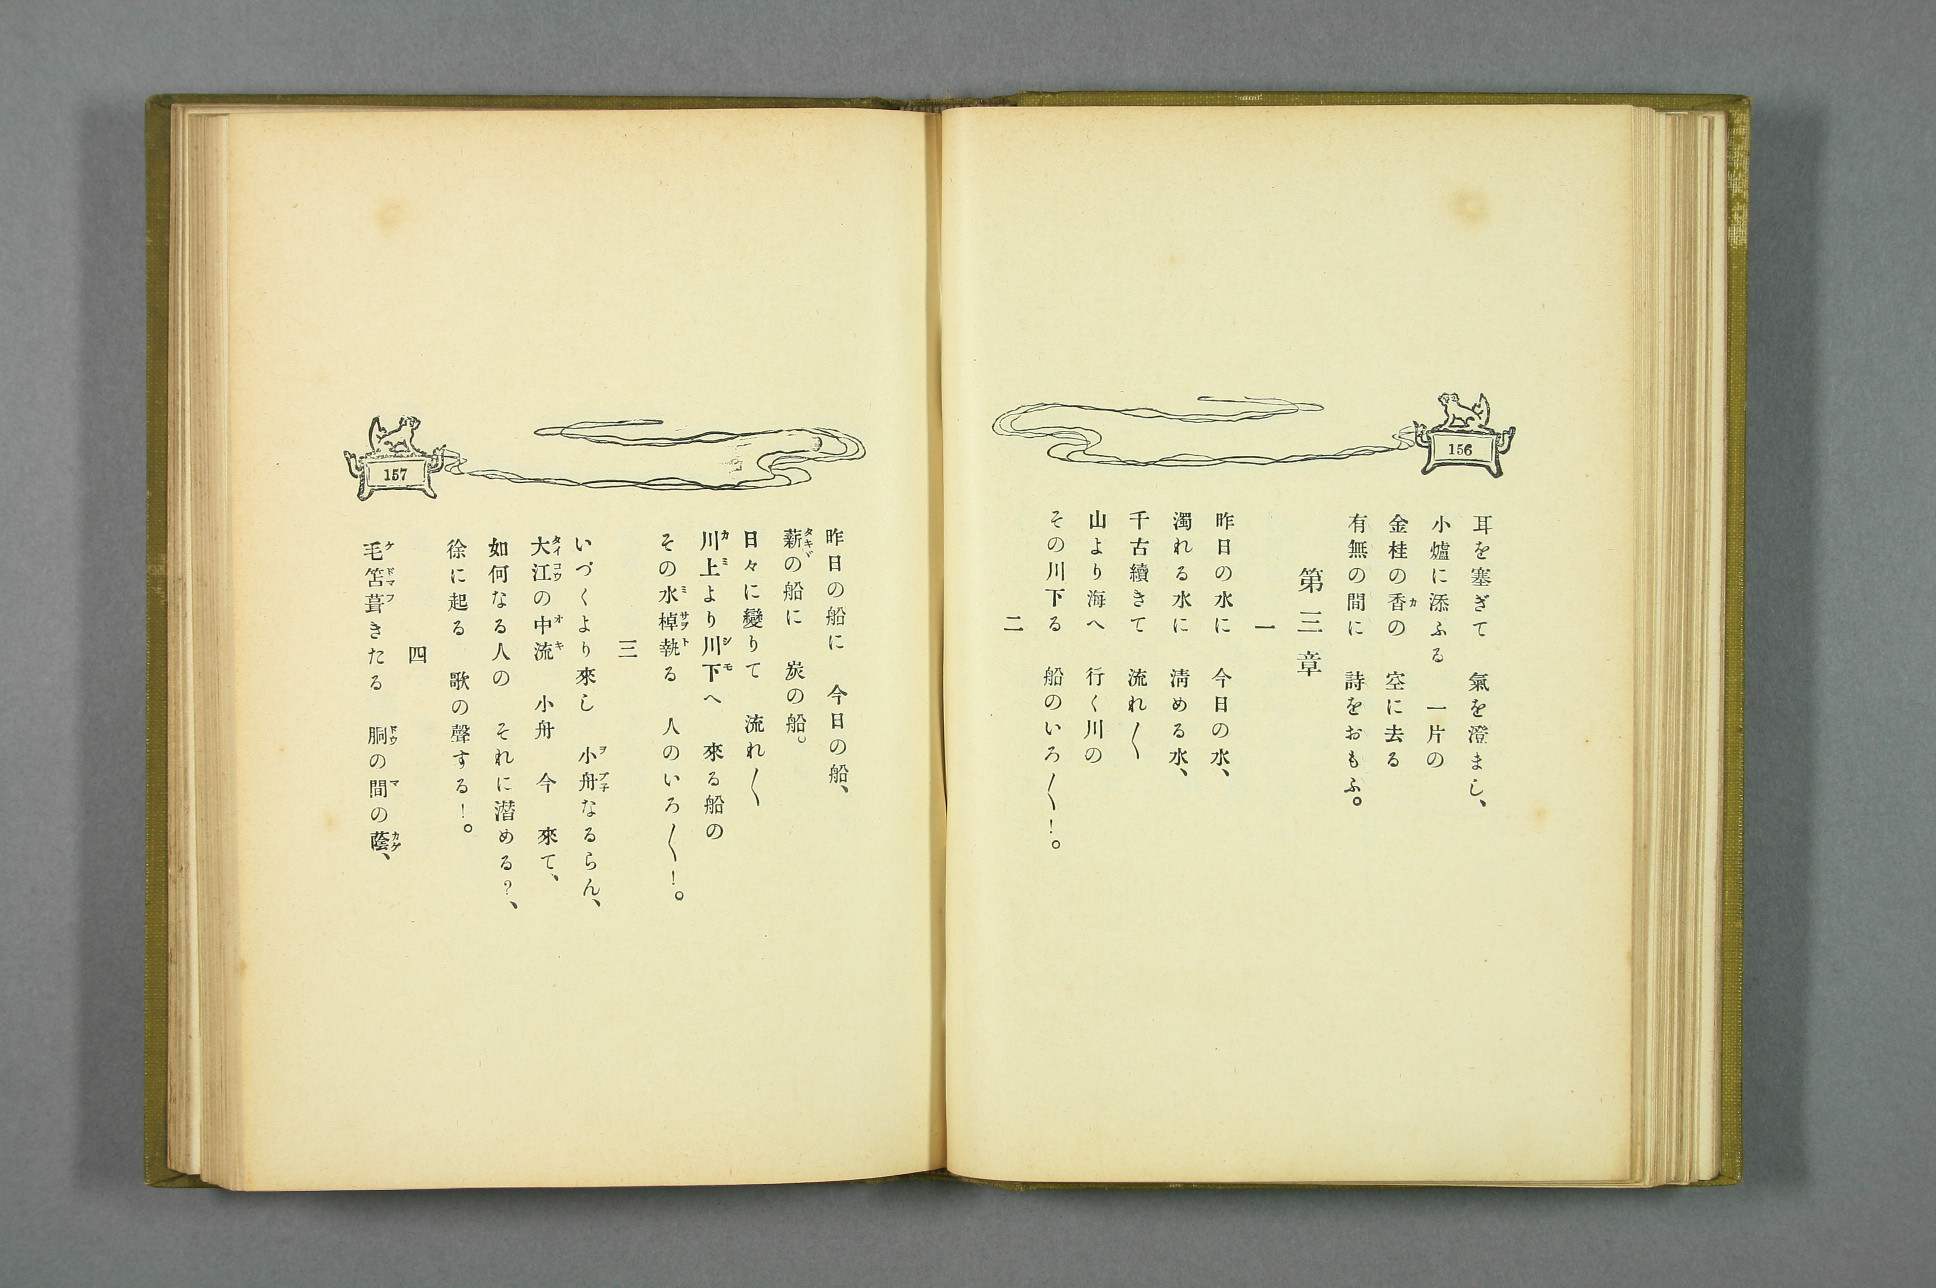 156
耳を塞ぎて　氣を澄まし、
小爐に添ふる　一片の
金桂の香の　空に去る
有無の間に　詩をおもふ。
第三章
一
昨日の水に　今日の水、
濁れる水に　淸める水、
千古續きて　流れ〳〵
山より海へ　行く川の
その川下る　船のいろ〳〵！。
二
157
昨日の船に　今日の船、
薪の船に　炭の船。
日々に變りて　流れ〳〵
川上より川下へ　來る船の
その水棹執る　人のいろ〳〵！。
三
いづくより來し　小舟なるらん、
大江の中流　小舟　今　來て、
如何なる人の　それに潜める？、
徐に起る　歌の聲する！。
四
毛笘葺きたる　胴の間の蔭、